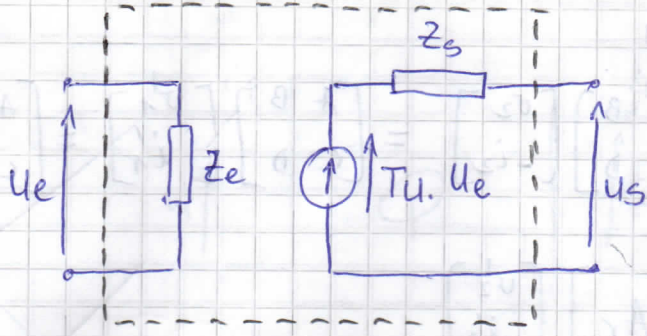 Zs
Ze
ue
Tu. ue
us